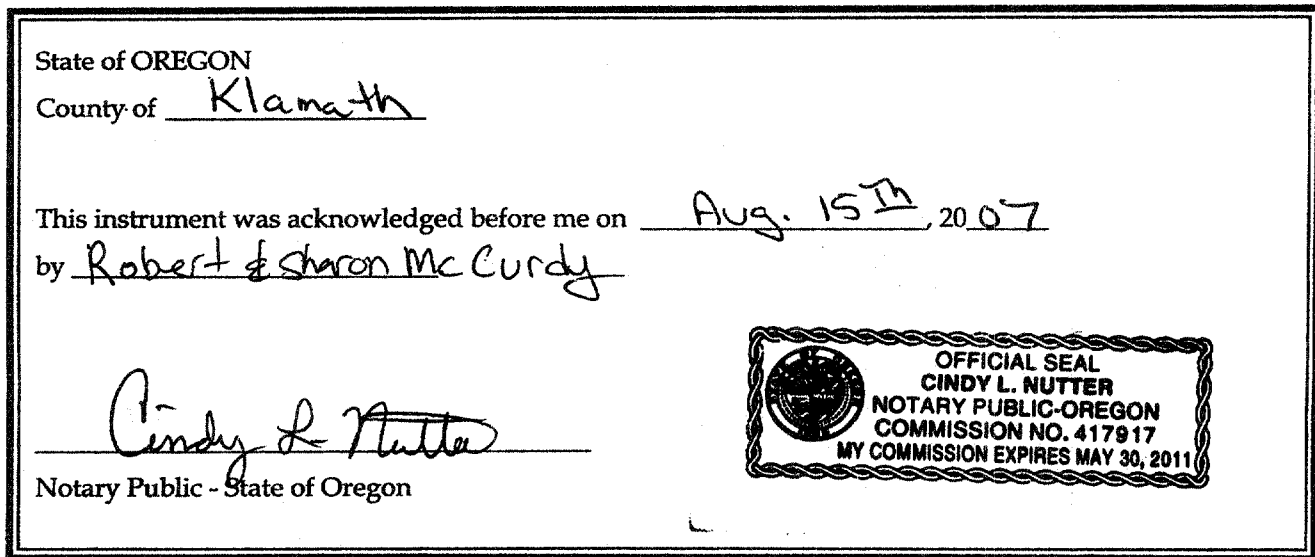 State of OREGON
County of Klamath
This instrument was acknowledged before me on Aug. 15Th, 2007
by Robert & Sharon McCurdy
Cindy L Nutter
Notary Public - State of Oregon
OFFICIAL SEAL
CINDY L. NUTTER
NOTARY PUBLIC-OREGON
COMMISSION NO. 417917
MY COMMISSION EXPIRES MAY 30, 2011